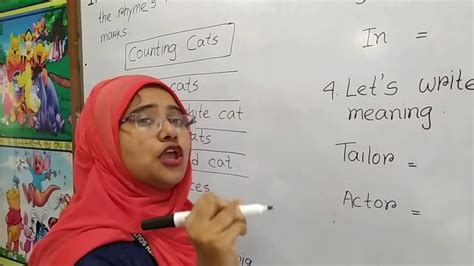 the rhyme's
marks
Counting Cats
cats
white cat
cats
d cat
ces
In =
4. Let's write
meaning
Tailor =
Actor =